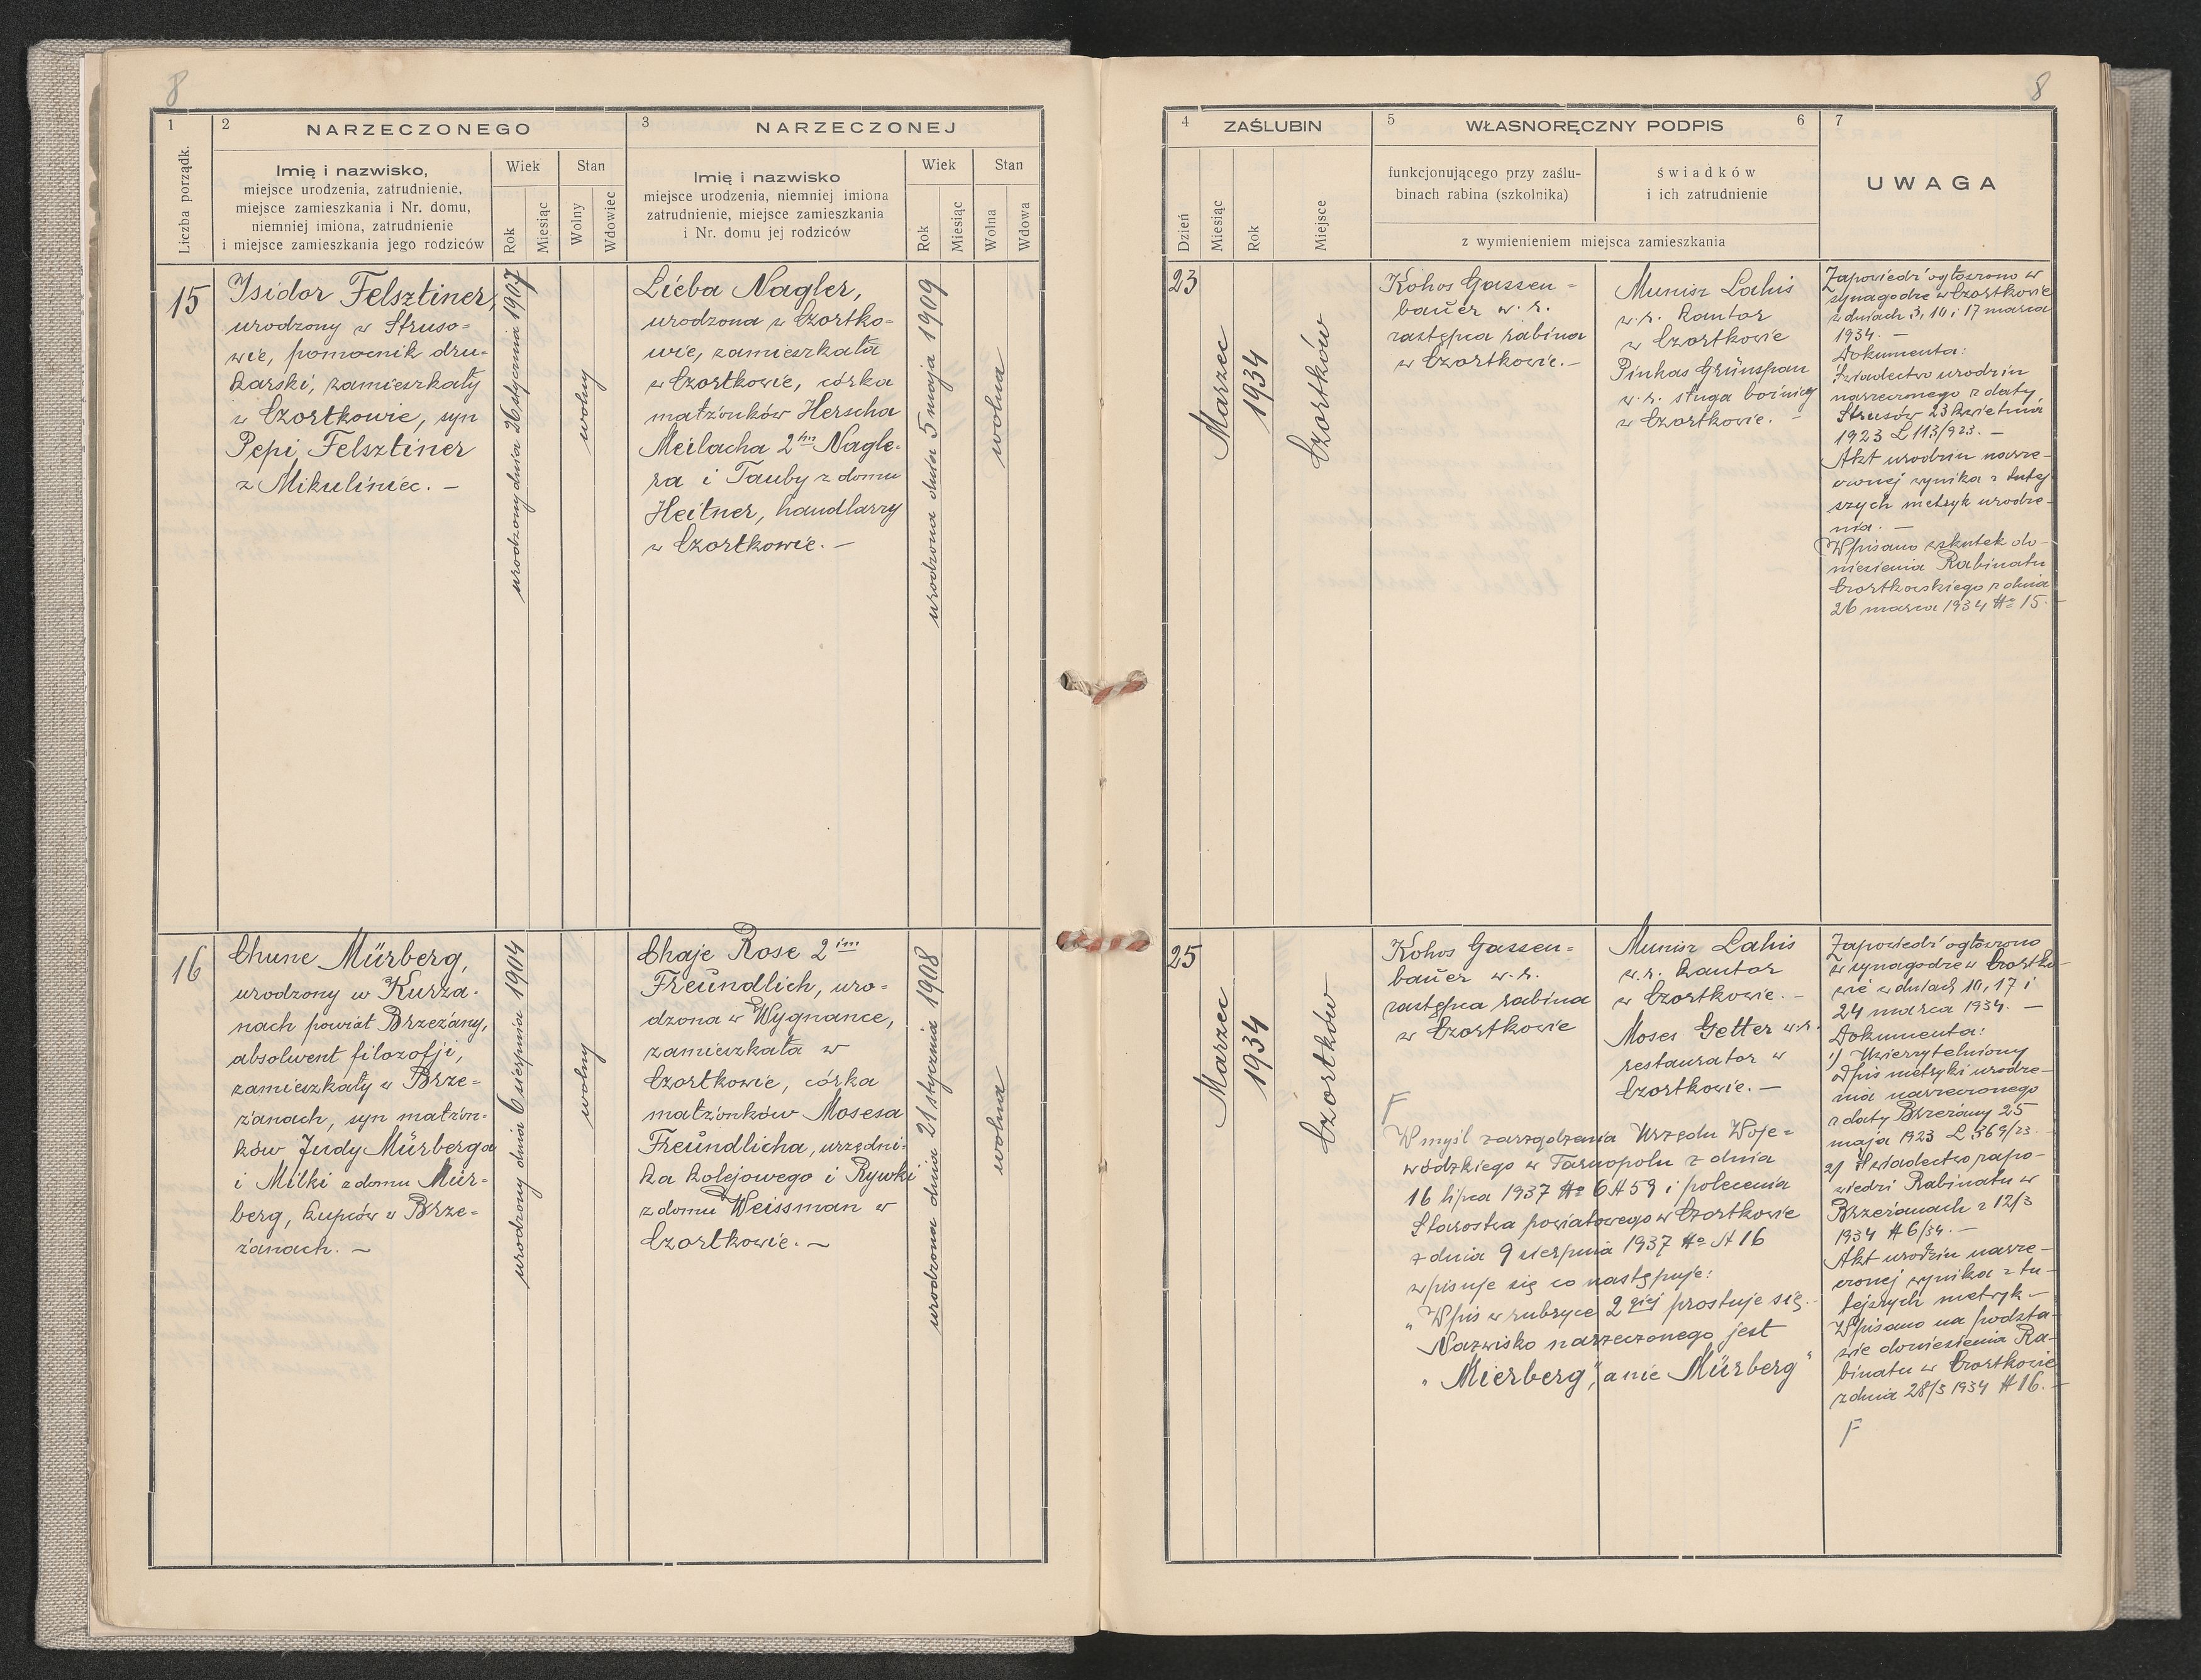 8
1
2
NARZECZONEGO
3
NARZECZONEJ
Liczba porządk.
Imię i nazwisko,
miejsce urodzenia, zatrudnienie,
miejsce zamieszkania i Nr. domu,
niemniej imiona, zatrudnienie
i miejsce zamieszkania jego rodziców
Wiek
Stan
Rok
Miesiąc
Wolny
Wdowiec
Imię i nazwisko
miejsce urodzenia, niemniej imiona
zatrudnienie, miejsce zamieszkania
i Nr. domu jej rodziców
Wiek
Stan
Rok
Miesiąc
Wolna
Wdowa
15
Isidor Felsztiner,
urodzony w Struso-
wie, pomocnik dru-
karski, zamieszkały
w Czortkowie, syn
Pepi Felsztiner
z Mikuliniec. —
urodzony dnia 26 stycznia 1907
wolny
Lieba Nagler,
urodzona w Czortko-
wie, zamieszkała
w Czortkowie, córka
małżonków Herscha
Meilacha 2im Nagle-
ra i Tauby z domu
Heitner, handlarzy
w Czortkowie. —
urodzona dnia 5 maja 1909
wolna
16
Chune Mürberg,
urodzony w Kurza-
nach powiat Brzeżany,
absolwent filozofji,
zamieszkały w Brze-
żanach, syn małżon-
ków Judy Mürberga
i Milki z domu Mür-
berg, kupców w Brze-
żanach. —
urodzony dnia 6 sierpnia 1904
wolny
Chaje Rose 2im
Freundlich, uro-
dzona w Wygnance,
zamieszkała w
Czortkowie, córka
małżonków Mosesa
Freundlicha, urzędni-
ka kolejowego i Rywki
z domu Weissman w
Czortkowie. —
urodzona dnia 21 stycznia 1908
wolna
8
4
ZAŚLUBIN
5
WŁASNORĘCZNY PODPIS
6
7
Dzień
Miesiąc
Rok
Miejsce
funkcjonującego przy zaślu-
binach rabina (szkolnika)
świadków
i ich zatrudnienie
z wymienieniem miejsca zamieszkania
UWAGA
23
Marzec
1934
Czortków
Kohos Gassen-
bauer w.r.
zastępca rabina
w Czortkowie. —
Munisz Lahis
w.r. kantor
w Czortkowie
Pinkas Grünspan
w.r. sługa bożnicy
w Czortkowie. —
Zapowiedzi ogłoszono w
synagodze w Czortkowie
w dniach 3, 10 i 17 marca
1934. —
Dokumenta:
Świadectwo urodzin
narzeczonego z daty
Strusów 23 kwietnia
1923 L 113/923. —
Akt urodzin narze-
czonej wynika z tutej-
szych metryk urodze-
nia. —
Wpisano wskutek do-
niesienia Rabinatu
Czortkowskiego z dnia
26 marca 1934 No 15. —
25
Marzec
1934
Czortków
Kohos Gassen-
bauer w.r.
zastępca rabina
w Czortkowie
Munisz Lahis
w.r. kantor
w Czortkowie. —
Moses Getter w.r.
restaurator w
Czortkowie. —
F
W myśl zarządzenia Urzędu Woje-
wódzkiego w Tarnopolu z dnia
16 lipca 1937 No 6A59 i polecenia
Starostwa powiatowego w Czortkowie
z dnia 9 sierpnia 1937 No A 16
wpisuje się co następuje:
„Wpis w rubryce 2giej prostuje się.
Nazwisko narzeczonego jest
„Mierberg", a nie Mürberg"
Zapowiedzi ogłoszono
w synagodze w Czortko-
wie w dniach 10, 17 i
24 marca 1934. —
Dokumenta:
1) Uwierzytelniony
odpis metryki urodze-
nia narzeczonego
z daty Brzeżany 25
maja 1923 L 369/23. —
2) Świadectwo zapo-
wiedzi Rabinatu w
Brzeżanach z 12/3
1934 # 6/34. —
Akt urodzin narze-
czonej wynika z tu-
tejszych metryk. —
Wpisano na podsta-
wie doniesienia Ra-
binatu w Czortkowie
z dnia 28/3 1934 # 16. —
F